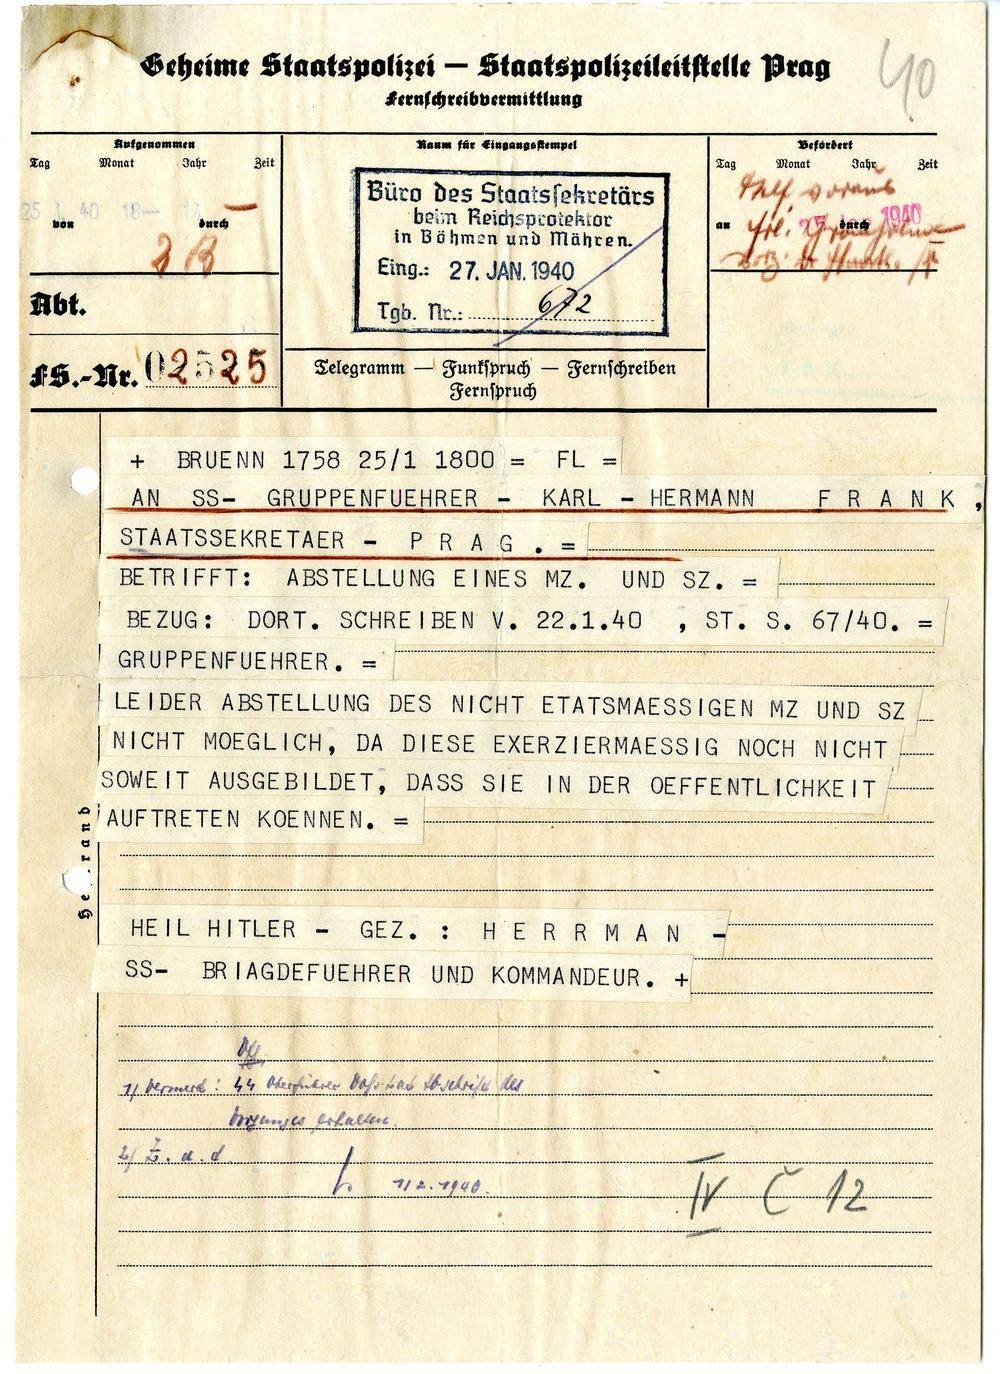 Geheime Staatspolizei — Staatspolizeileitstelle Prag
40
Fernschreibvermittlung
Aufgenommen
Tag Monat Jahr Zeit
25 1. 40 18
von durch
Raum für Eingangsstempel
Büro des Staatssekretärs
beim Reichsprotektor
in Böhmen und Mähren.
Eing.: 27. JAN. 1940
Tgb. Nr.: 672
Befördert
Tag Monat Jahr Zeit
voraus
an durch
1940
Abt.
FS.-Nr. 02525
Telegramm — Funkspruch — Fernschreiben
Fernspruch
+ BRUENN 1758 25/1 1800 = FL =
AN SS- GRUPPENFUEHRER - KARL - HERMANN F R A N K ,
STAATSSEKRETAER - P R A G . =
BETRIFFT: ABSTELLUNG EINES MZ. UND SZ. =
BEZUG: DORT. SCHREIBEN V. 22.1.40 , ST. S. 67/40. =
GRUPPENFUEHRER. =
LEIDER ABSTELLUNG DES NICHT ETATSMAESSIGEN MZ UND SZ
NICHT MOEGLICH, DA DIESE EXERZIERMAESSIG NOCH NICHT
SOWEIT AUSGEBILDET, DASS SIE IN DER OEFFENTLICHKEIT
AUFTRETEN KOENNEN. =
HEIL HITLER - GEZ. : H E R R M A N -
SS- BRIAGDEFUEHRER UND KOMMANDEUR. +
1/ Vermerk: SS Oberführer hat Abschrift des
Vorganges erhalten.
2/ Z. d. A.
1/2.1940.
IV Č 12